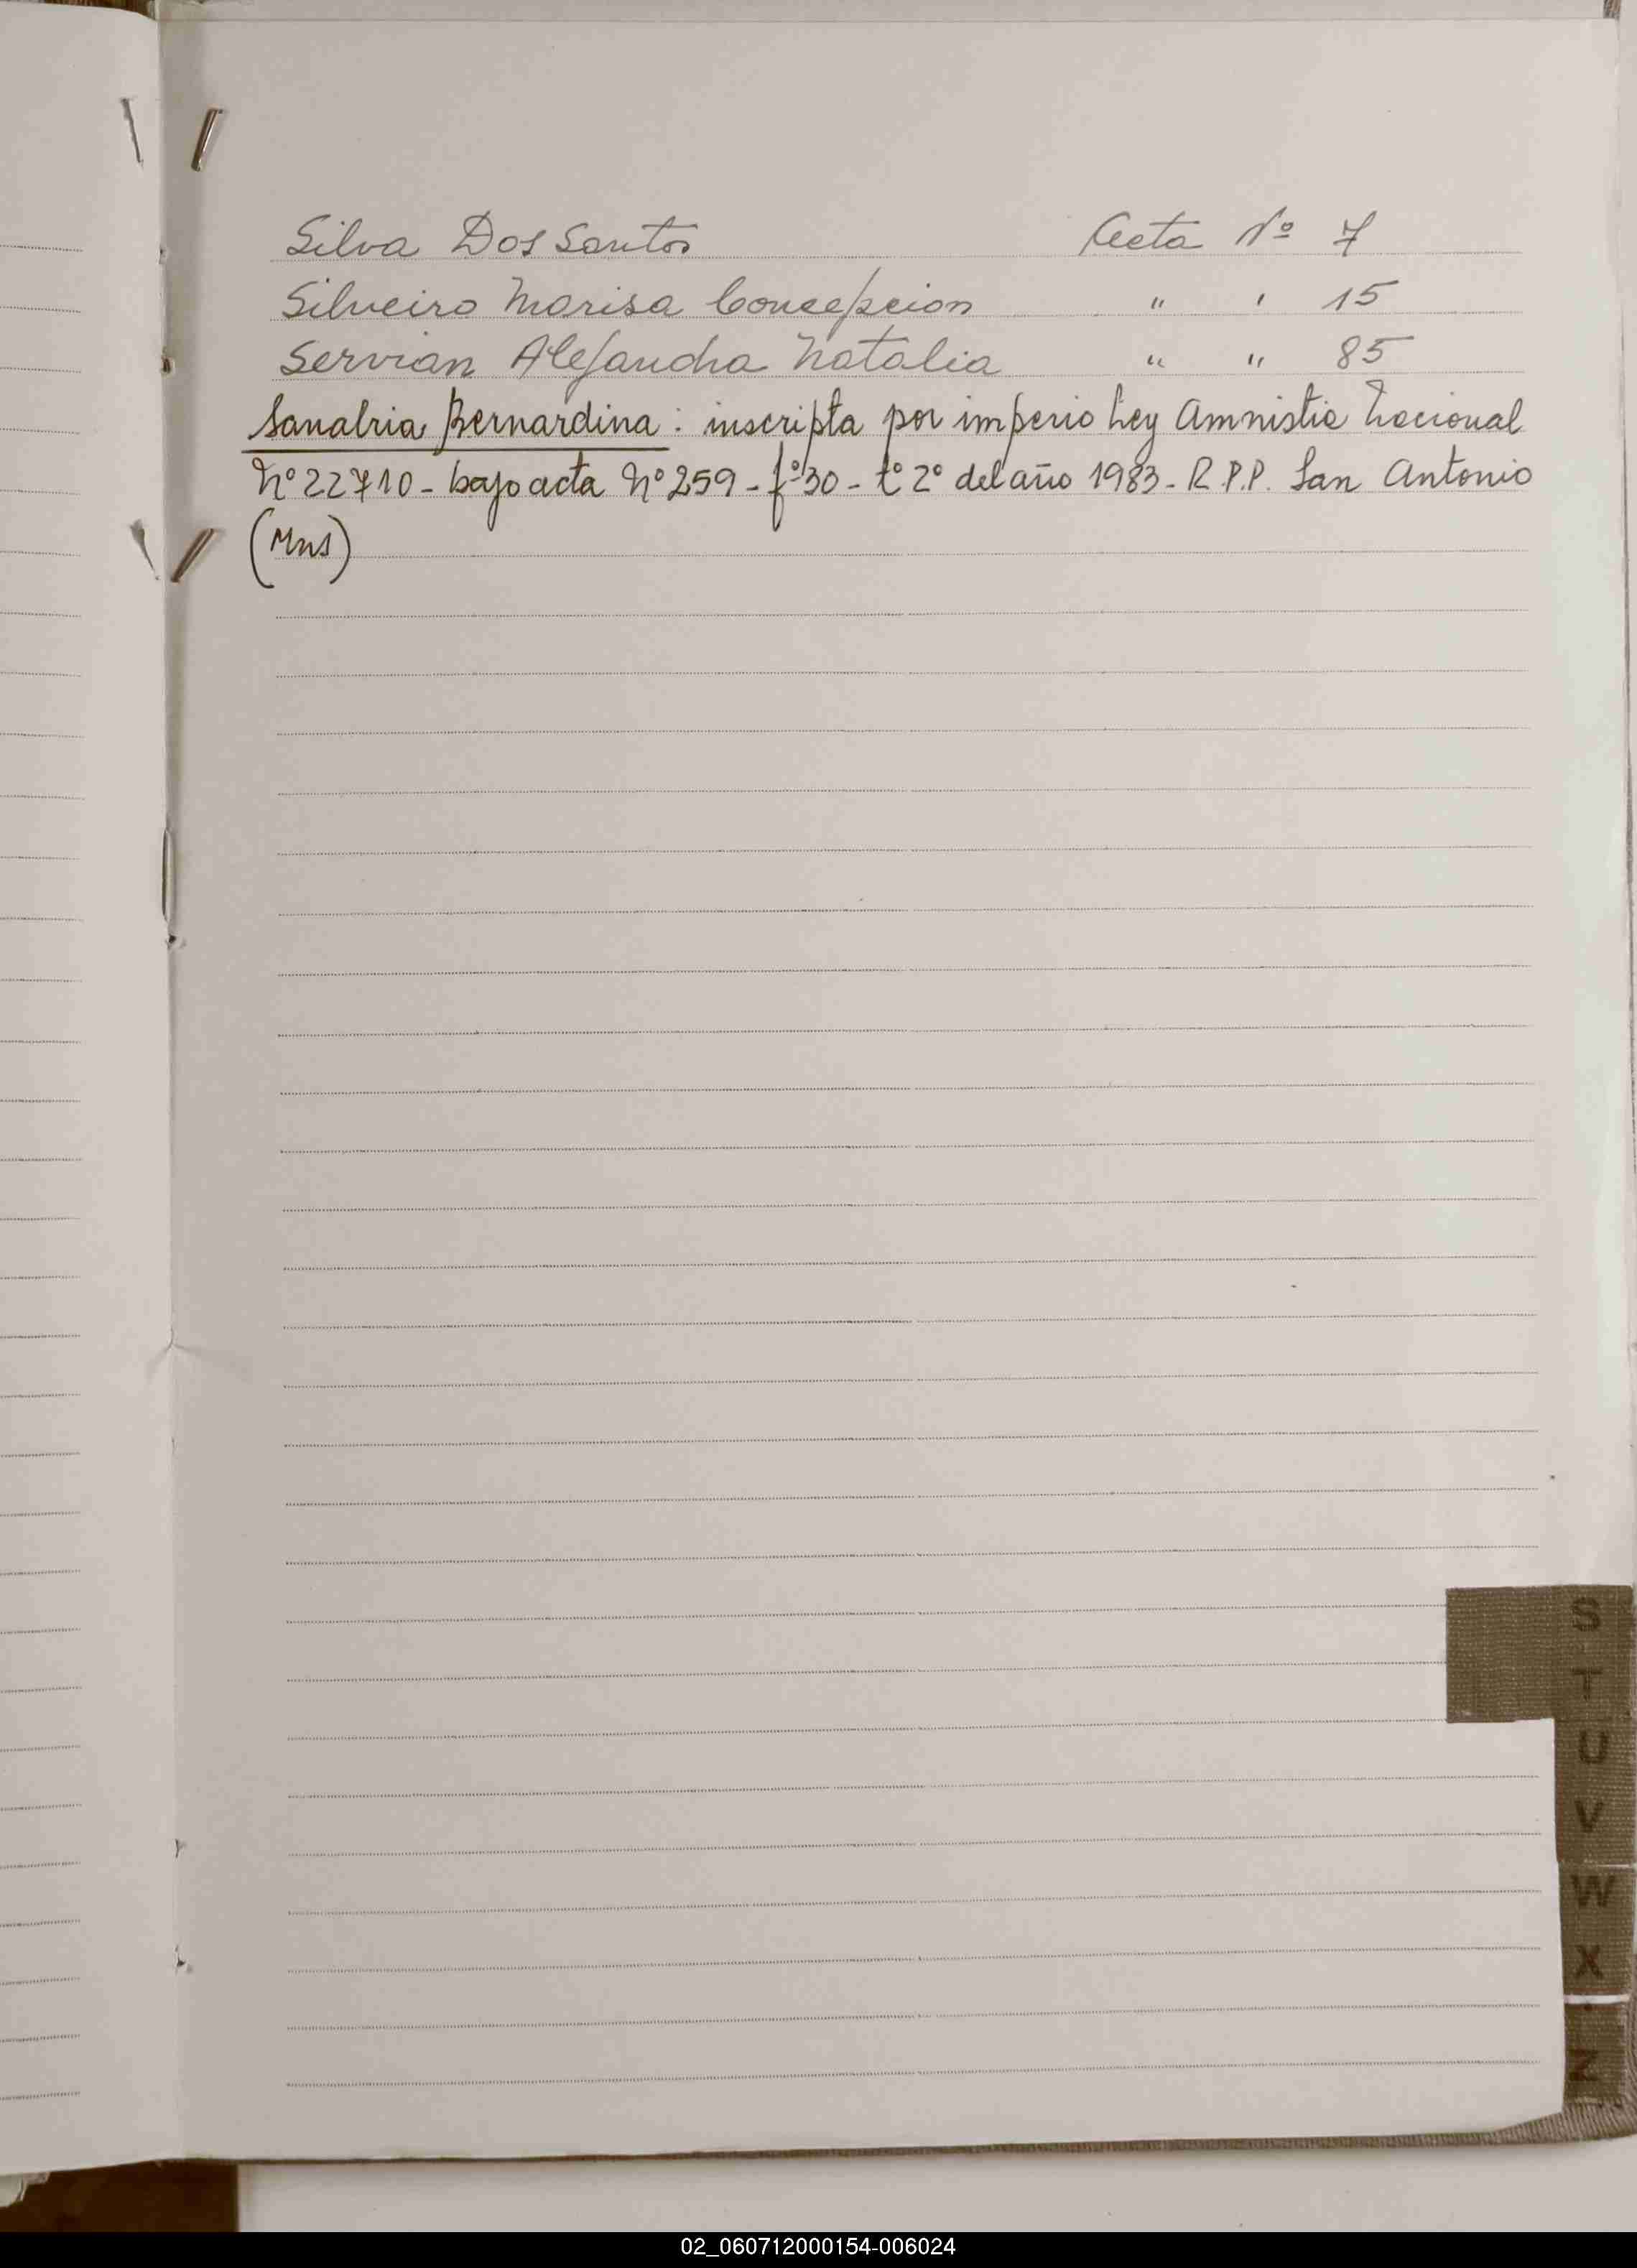 Silva Dos Santos Acta Nº 7
Silveiro Marisa Concepcion " ' 15
Servian Alejandra Natalia " " 85
Sanabria Bernardina : inscripta por imperio Ley Amnistia Nacional
Nº 22710 - bajo acta Nº 259 - fº 30 - tº 2º del año 1983 - R.P.P. San Antonio
(Mns)
S
T
U
V
W
X
Z
02_060712000154-006024